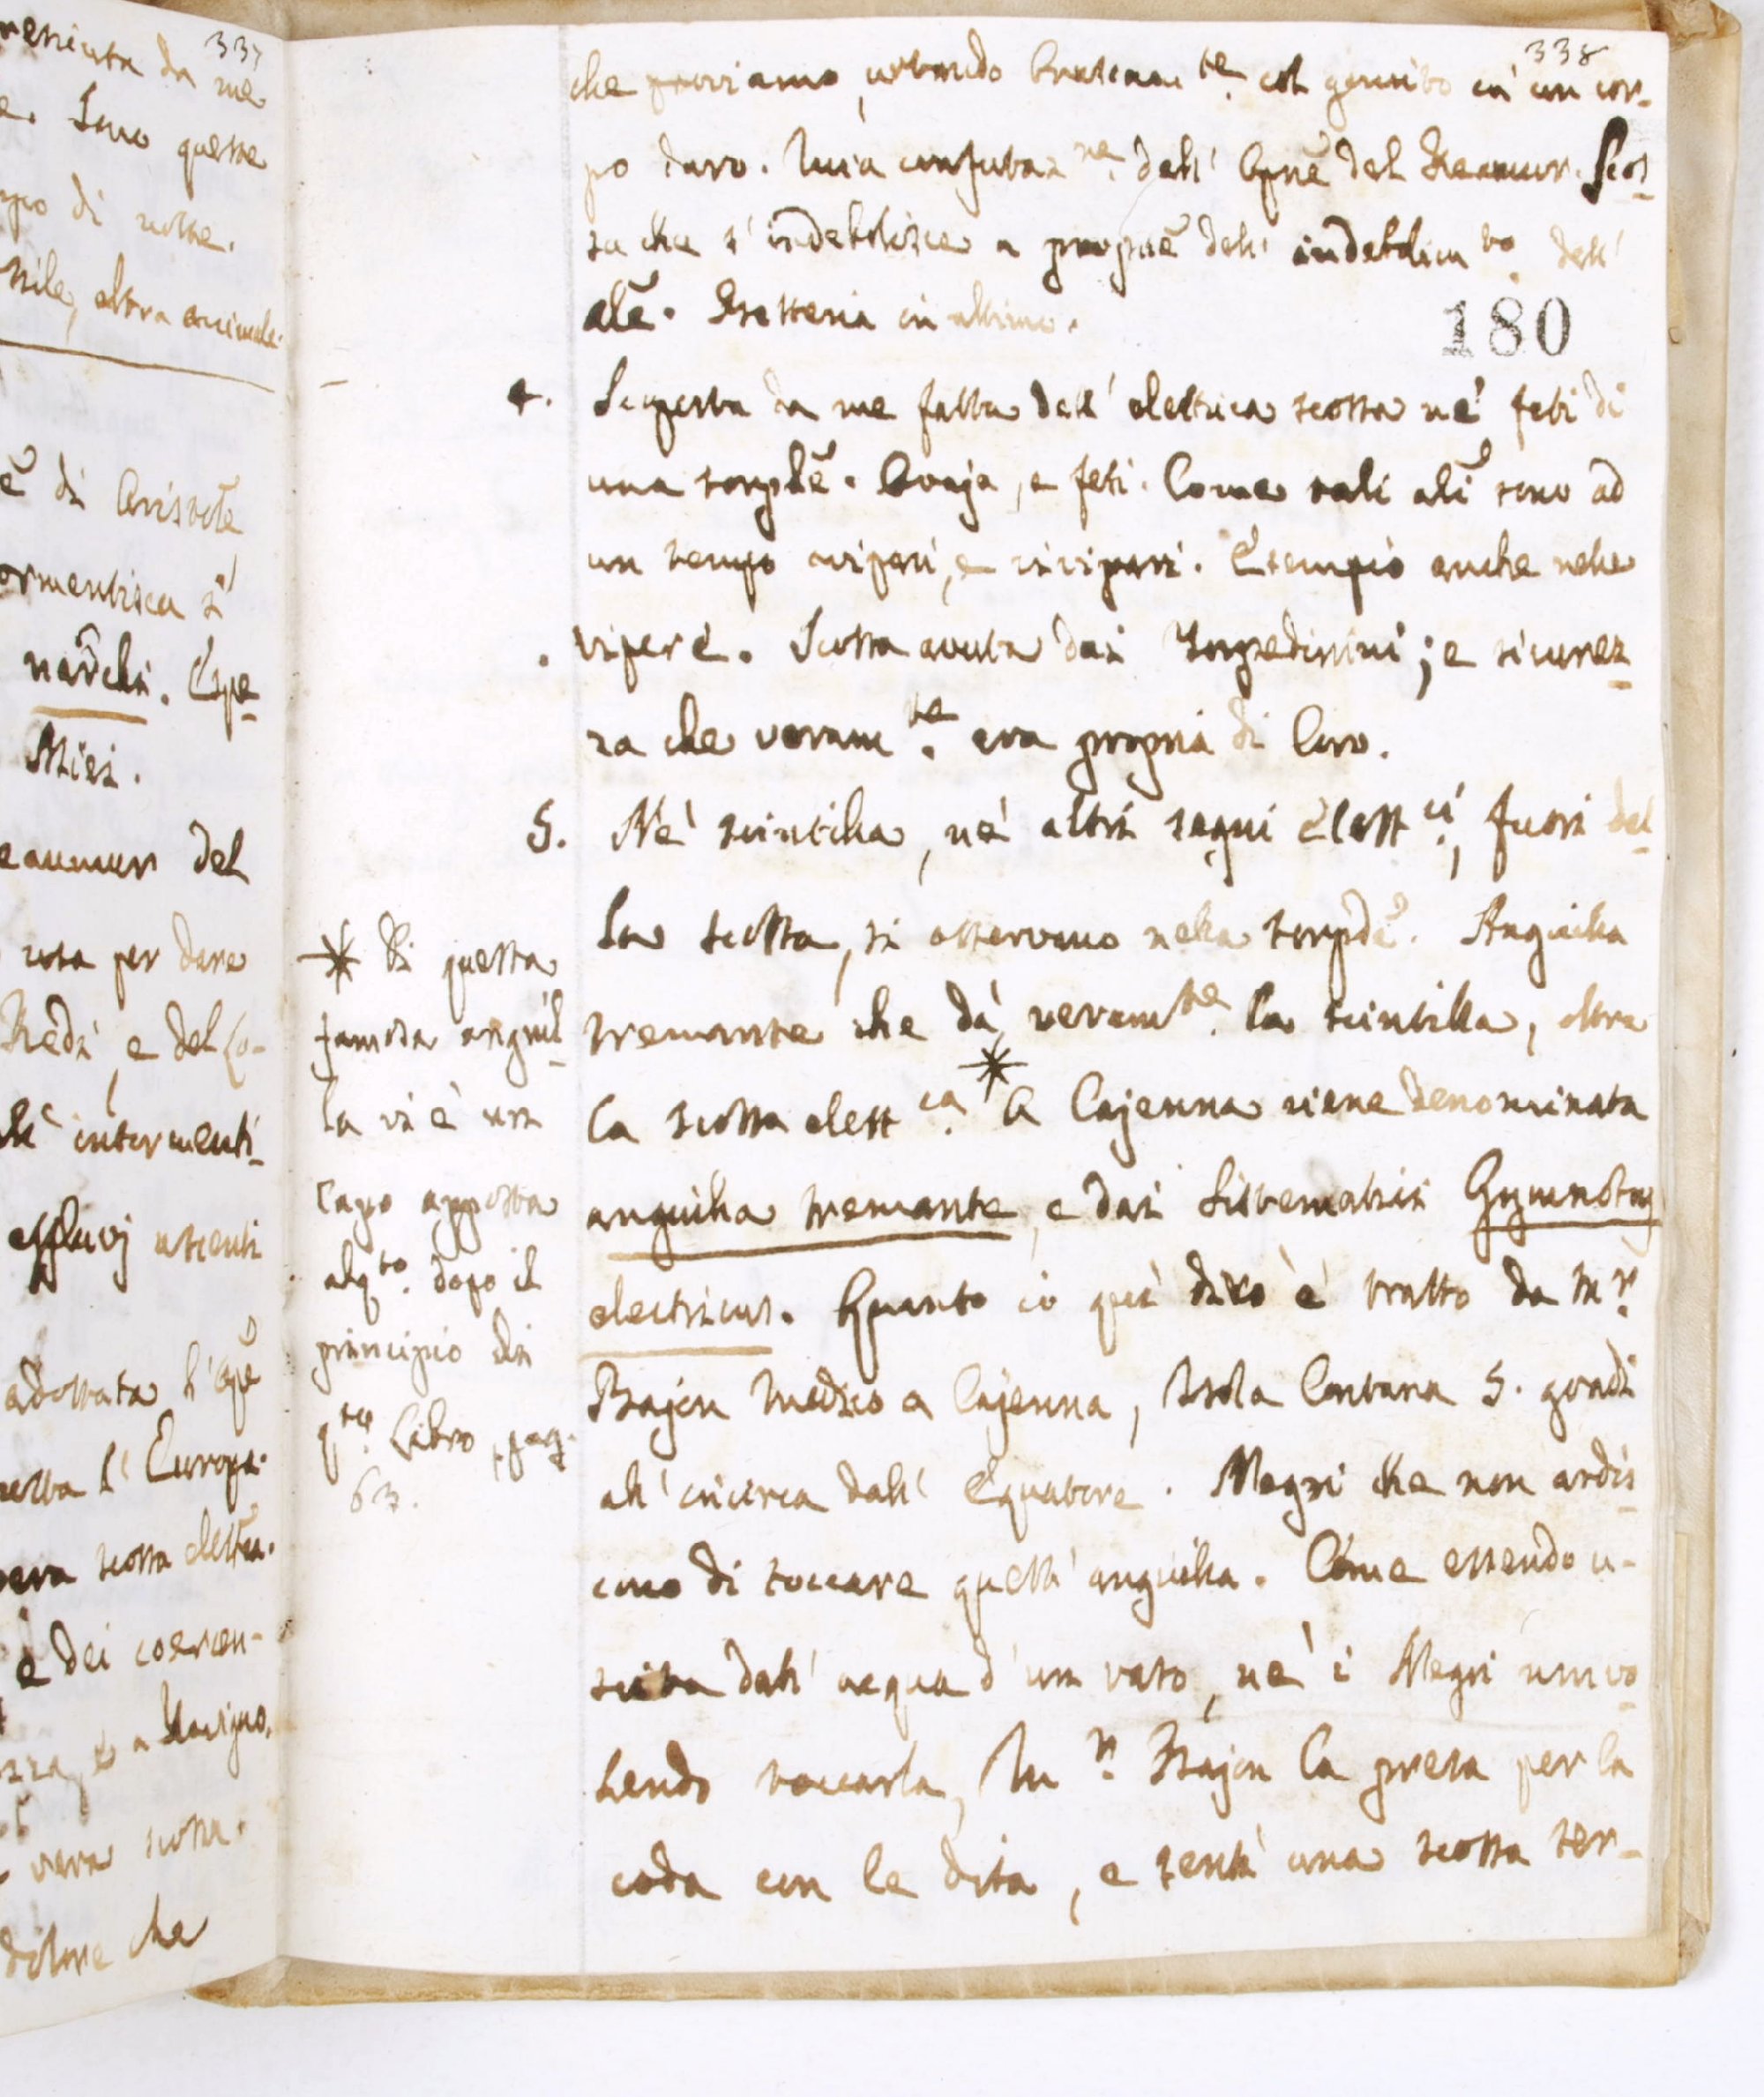 337
veniuta da me
e. Sono queste
mpo di notte.
nile, altra animale.
è di Aristotẽ
ormentisca s'
narchi. Espe-
Miei.
eaumur del
usta per dare
Redi, e del Lo-
intormenti-
effluvj uscenti
adottata l'opẽ
tutta l'Europa.
vera scossa elettca.
e dei coercen-
vera scossa.
dolore che
338
che proviamo, urtando fortem.te col gomito in un cor-
po duro. Mia confutaz.ne dell'Opnẽ del Reaumur. Scos-
sa che s'indebolisce a proporẽ dell'indebolim.to dell'
alẽ. Isteria in ultimo.
180
4. Scoperta da me fatta dell'elettrica scossa ne' feti di
una torpdẽ. Ovaja, e feti. Come tali alĩ sono ad
un tempo ovipari, e vivipari. Esempio anche nelle
vipere. Scossa avuta dai Torpedinini; e sicurez-
za che veram.te era propria di Loro.
5. Nè scintilla, nè altri segni Elett.ci, fuori del-
la scossa, si osservano nella torpdẽ. Anguilla
tremante che dà veram.te la scintilla, oltre
la scossa elett.ca * A Cajenna viene denominata
anguilla tremante, e dai Sistematici Gymnotus
electricus. Quanto io quì dico è tratto da M.r
Bajon Medico a Cajenna, Isola lontana 5. gradi
all'incirca dall'Equatore. Negri che non ardis-
cono di toccare quest'anguilla. Come essendo u-
scita dall'acqua d'un vaso, nè i Negri unvo-
lendo toccarla, M.r Bajon la presa per la
coda con le dita, e sentì una scossa ter-
* Di questa
famosa anguil-
la vi è una
capo apposta
alq.to dopo il
principio di
q.to Libro, pag.
63.